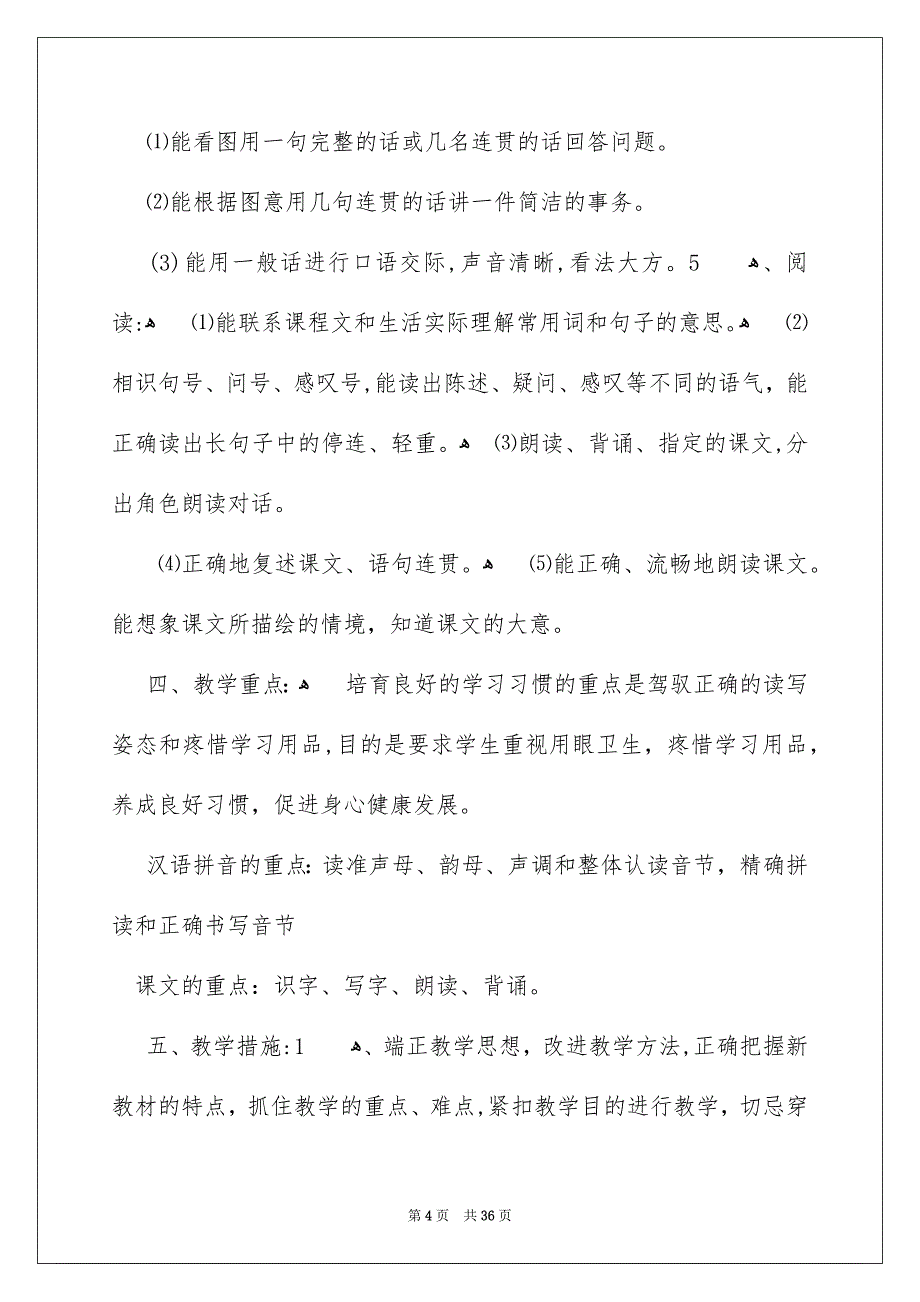 ⑴能看图用一句完整的话或几名连贯的话回答问题。
⑵能根据图意用几句连贯的话讲一件简洁的事务。
(3)能用一般话进行口语交际,声音清晰,看法大方。5 ﻫ、阅
读:ﻫ ⑴能联系课程文和生活实际理解常用词和句子的意思。ﻫ ⑵
相识句号、问号、感叹号,能读出陈述、疑问、感叹等不同的语气，能
正确读出长句子中的停连、轻重。ﻫ ⑶朗读、背诵、指定的课文,分
出角色朗读对话。
⑷正确地复述课文、语句连贯。ﻫ ⑸能正确、流畅地朗读课文。
能想象课文所描绘的情境，知道课文的大意。
四、教学重点：ﻫ 培育良好的学习习惯的重点是驾驭正确的读写
姿态和疼惜学习用品,目的是要求学生重视用眼卫生，疼惜学习用品，
养成良好习惯，促进身心健康发展。
汉语拼音的重点：读准声母、韵母、声调和整体认读音节，精确拼
读和正确书写音节
课文的重点：识字、写字、朗读、背诵。
五、教学措施:1 ﻫ、端正教学思想，改进教学方法,正确把握新
教材的特点，抓住教学的重点、难点,紧扣教学目的进行教学，切忌穿
第 4 页 共 36 页